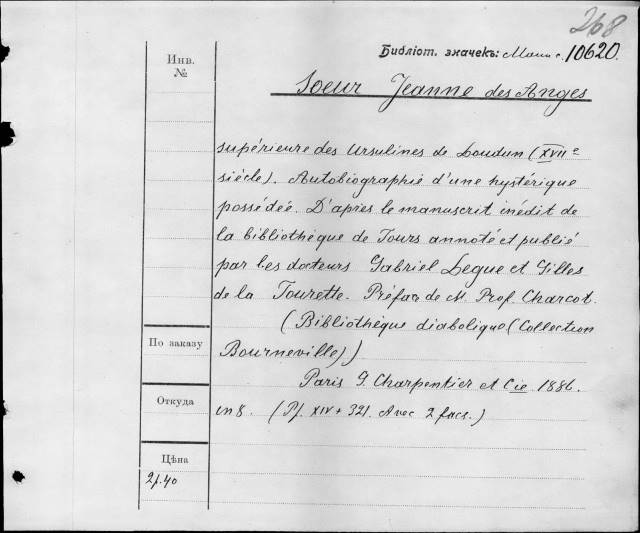 268
Библіот. значекъ: 10620.
Инв.
№
Soeur Jeanne des Anges
supérieure des Ursulines de Loudun (XVIIe
siècle). Autobiographie d'une hystérique
possédée. D'après le manuscrit inédit de
la bibliothèque de Tours annoté et publié
par les docteurs Gabriel Legue et Gilles
de la Tourette. Préface de M. Prof. Charcot.
(Bibliothèque diabolique (Collection
По заказу
Bourneville))
Paris G. Charpentier et Cie 1886.
Откуда
in 8. (Pf. XIV + 321. Avec 2 facs.)
Цѣна
2f.40